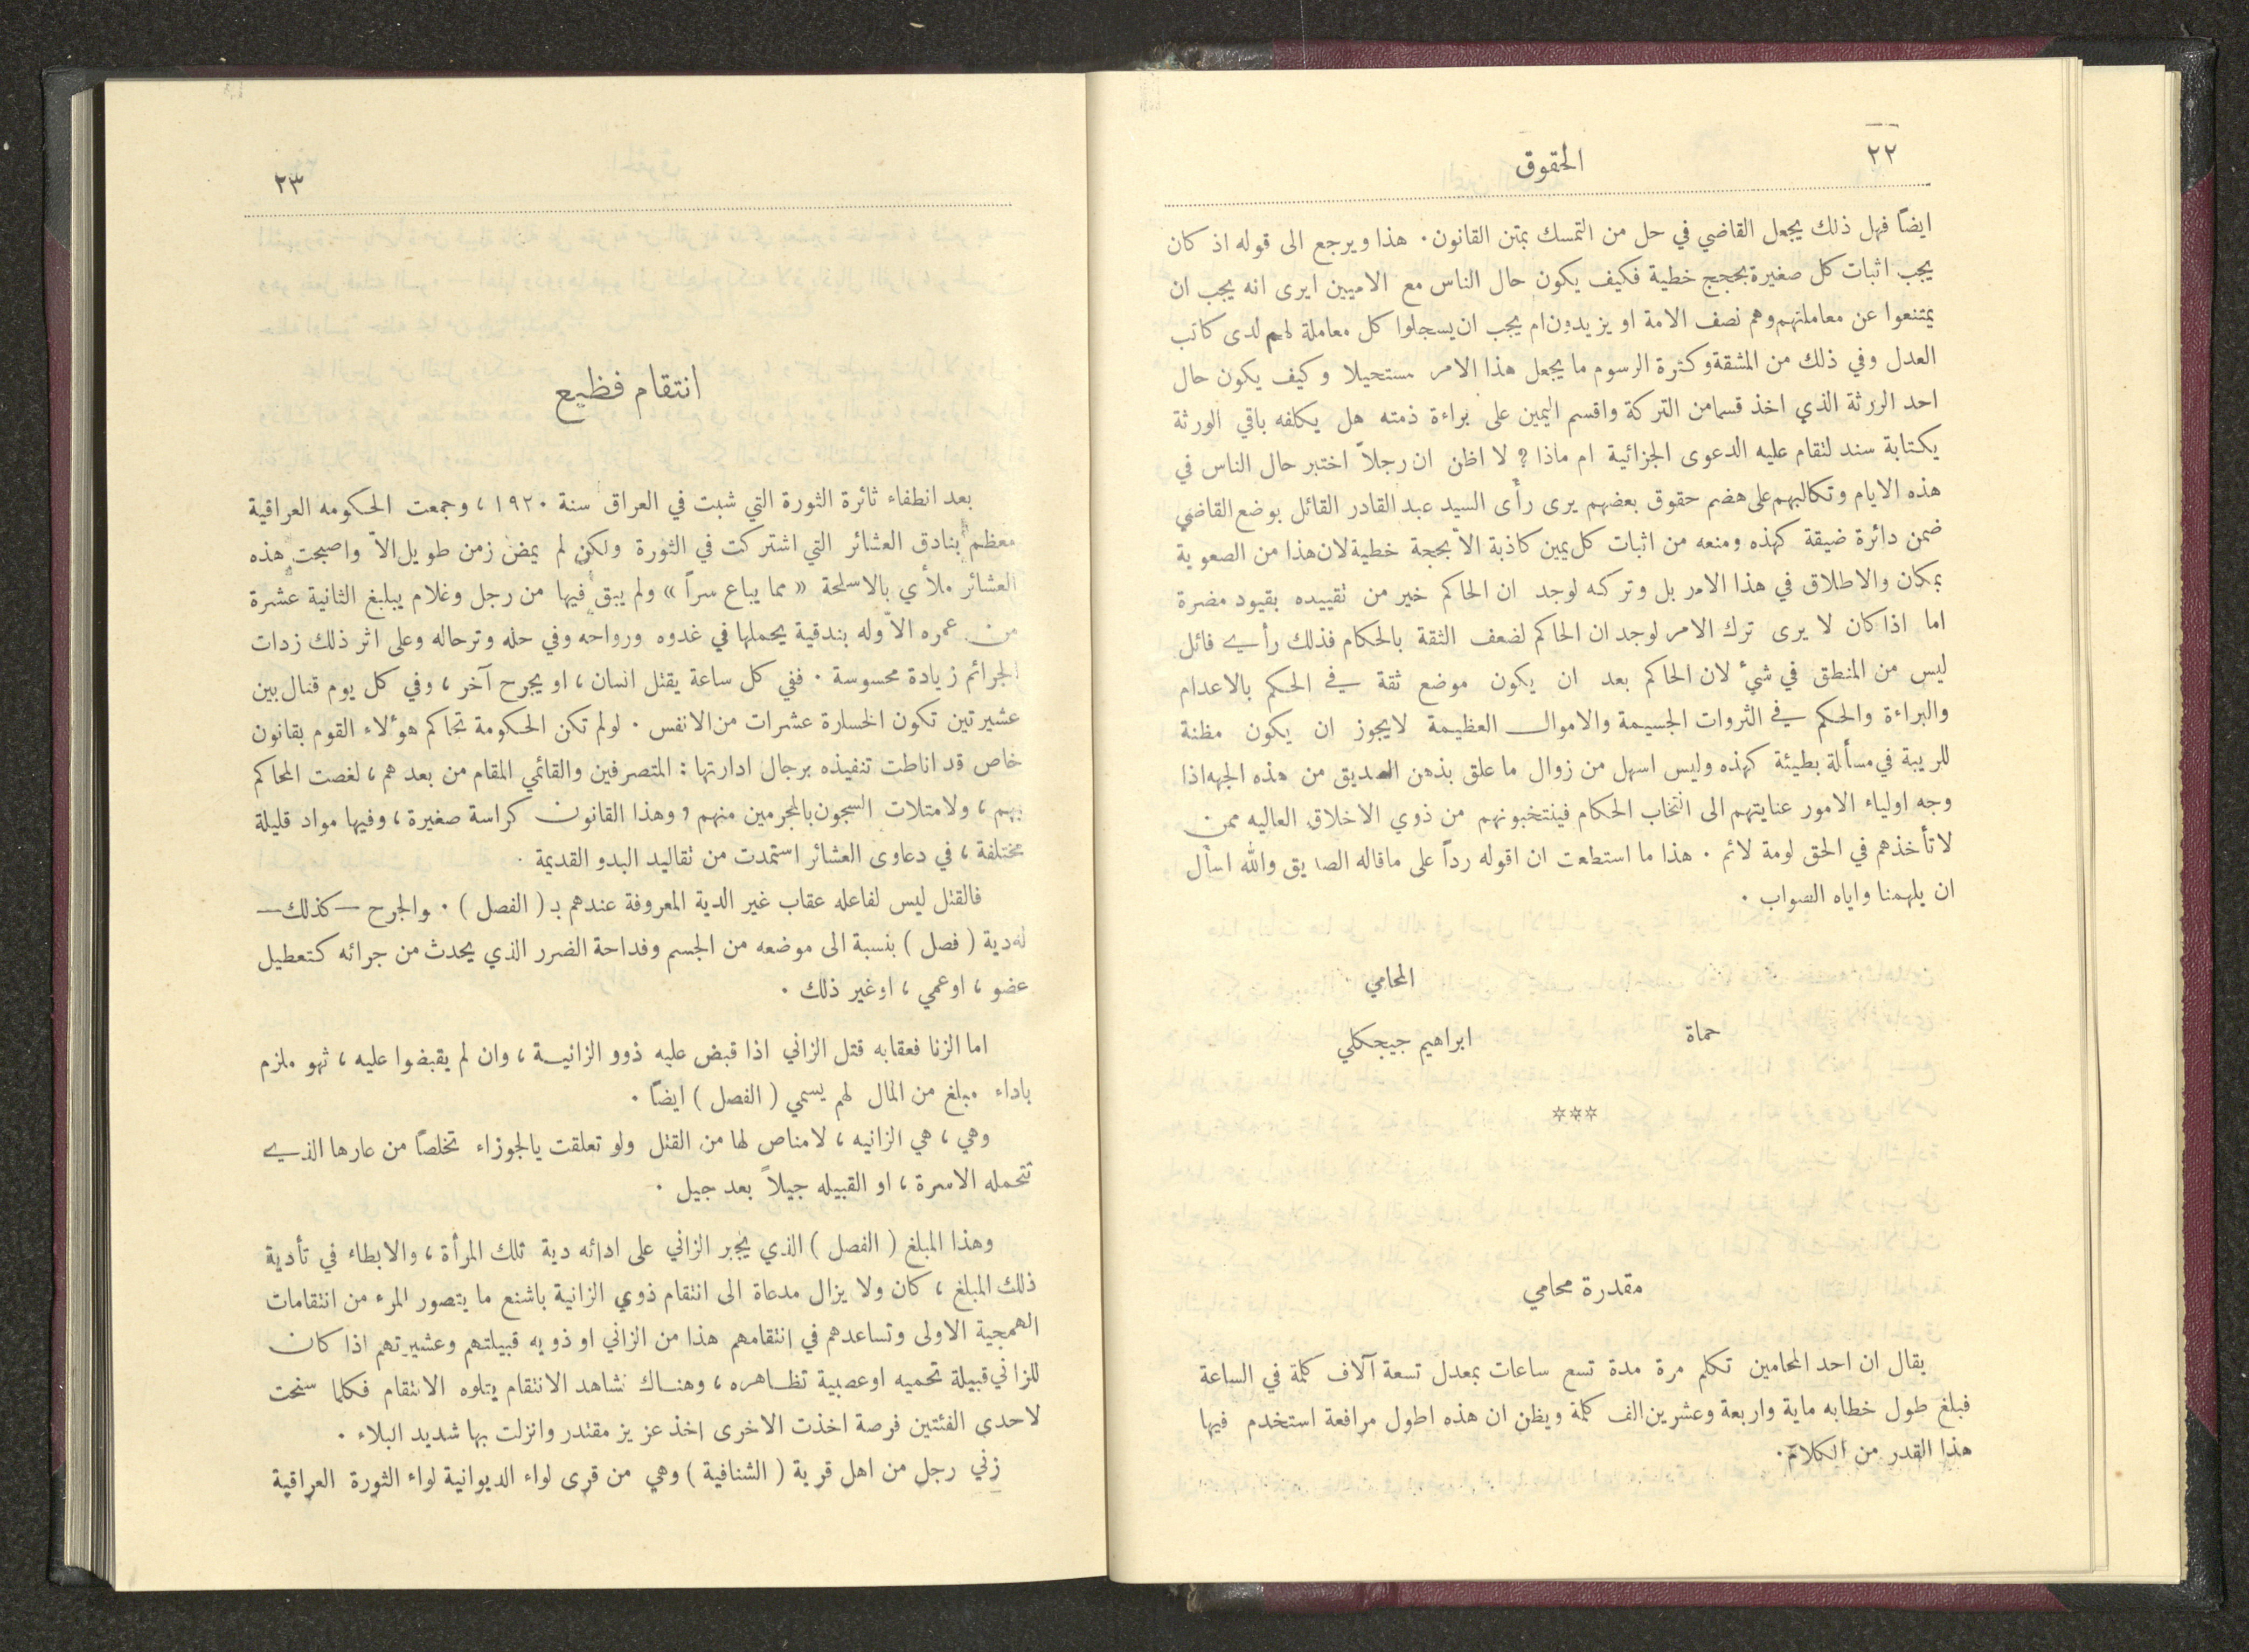 ٢٢
الحقوق
ايضاً فهل ذلك يجعل القاضي في حل من التمسك بمتن القانون. هذا ويرجع الى قوله اذ كان
يجب اثبات كل صغيرة بحجج خطية فكيف يكون حال الناس مع الاميين ايرى انه يجب ان
يمتنعوا عن معاملتهم وهم نصف الامة او يزيدون ام يجب ان يسجلوا كل معاملة لهم لدى كاتب
العدل وفي ذلك من المشقة وكثرة الرسوم ما يجعل هذا الامر مستحيلا وكيف يكون حال
احد الررثة الذي اخذ قسما من التركة واقسم اليمين على براءة ذمته هل يكلفه باقي الورثة
يكتابة سند لتقام عليه الدعوى الجزائية ام ماذا ? لا اظن ان رجلاً اختبر حال الناس في
هذه الايام وتكالبهم على هضم حقوق بعضهم يرى رأى السيد عبد القادر القائل بوضع القاضي
ضمن دائرة ضيقة كهذه ومنعه من اثبات كل يمين كاذبة الا بحجة خطية لان هذا من الصعوبة
بمكان والاطلاق في هذا الامر بل وتركه لوجد ان الحاكم خير من تقييده بقيود مضرة
اما اذا كان لا يرى ترك الامر لوجدان الحاكم لضعف الثقة بالحكام فذلك رأي فائل
ليس من المنطق في شيء لان الحاكم بعد ان يكون موضع ثقة في الحكم بالاعدام
والبراءة والحكم في الثروات الجسيمة والاموال العظيمة لايجوز ان يكون مظنة
للريبة في مسألة بطيئة كهذه وليس اسهل من زوال ما علق بذهن الصديق من هذه الجهه اذا
وجه اولياء الامور عنايتهم الى انتخاب الحكام فينتخبونهم من ذوي الاخلاق العاليه ممن
لا تأخذهم في الحق لومة لائم . هذا ما استطعت ان اقوله رداً على ماقاله الصديق والله اسأل
ان يلهمنا واياه الصواب .
المحامي
حماة ابراهيم جيجكلي
***
مقدرة محامي
يقال ان احد المحامين تكلم مرة مدة تسع ساعات بمعدل تسعة آلاف كلمة في الساعة
فبلغ طول خطابه ماية واربعة وعشرين الف كلمة ويظن ان هذه اطول مرافعة استخدم فيها
هذا القدر من الكلام.
٢٣
انتقام فظيع
بعد انطفاء ثائرة الثورة التي شبت في العراق سنة ١٩٢٠ ، وجمعت الحكومه العراقية
معظم بنادق العشائر التي اشتركت في الثورة ولكن لم يمض زمن طويل الا واصبحت هذه
العشائر ملأي بالاسلحة « مما يباع سراً » ولم يبق فيها من رجل وغلام يبلبغ الثانية عشرة
من عمره الا وله بندقية يحملها في غدوه ورواحه وفي حله وترحاله وعلى اثر ذلك زدات
الجرائم زيادة محسوسة . ففي كل ساعة يقتل انسان ، او يجرح آخر ، وفي كل يوم قتال بين
عشيرتين تكون الخسارة عشرات من الانفس . لولم تكن الحكومة تحاكم هؤلاء القوم بقانون
خاص قد اناطت تنفيذه برجال ادارتها : المتصرفين والقائمي المقام من بعدهم ، لغصت المحاكم
بهم ، ولامتلات السجون بالمجرمين منهم ، وهذا القانون كراسة صغيرة ، وفيها مواد قليلة
مختلفة ، في دعاوى العشائر استمدت من تقاليد البدو القديمة .
فالقتل ليس لفاعله عقاب غير الدية المعروفة عندهم بـ ( الفصل ) . والجرح — كذلك —
له دية ( فصل ) بنسبة الى موضعه من الجسم وفداحة الضرر الذي يحدث من جرائه كتعطيل
عضو ، اوعمي ، اوغير ذلك .
اما الزنا فعقابه قتل الزاني اذا قبض عليه ذوو الزانيـة ، وان لم يقبضوا عليه ، ثهو ملزم
باداء مبلغ من المال لهم يسمي ( الفصل ) ايضاً .
وهي ، هي الزانيه ، لامناص لها من القتل ولو تعلقت يالجوزاء تخلصاً من عارها الذي
تتحمله الاسرة ، او القبيله جيلاً بعد جيل .
وهذا المبلغ ( الفصل ) الذي يجبر الزاني على ادائه دية تلك المرأة ، والابطاء في تأدية
ذلك المبلغ ، كان ولا يزال مدعاة الى انتقام ذوي الزانية باشنع ما يتصور المرء من انتقامات
الهمجية الاولى وتساعدهم في انتقامهم هذا من الزاني او ذويه قبيلتهم وعشيرتهم اذا كان
للزاني قبيلة تحميه اوعصبية تظاهره ، وهناك نشاهد الانتقام يتلوه الانتقام فكلما سنحت
لاحدى الفئتين فرصة اخذت الاخرى اخذ عزيز مقتدر وانزلت بها شديد البلاء .
زني رجل من اهل قرية ( الشنافية ) وهي من قرى لواء الديوانية لواء الثورة العراقية